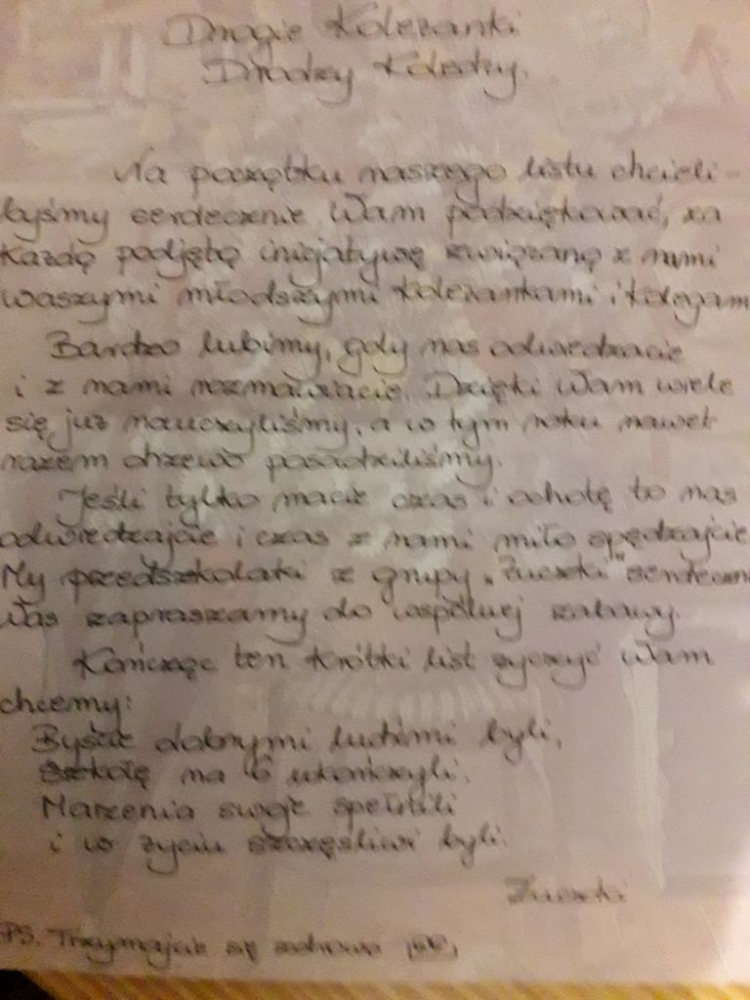 Drogie Koleżanki
Drodzy Koledzy,
Na początku naszego listu chcieli-
byśmy serdecznie Wam podziękować, za
każdą podjętą inicjatywę związaną z nami
waszymi młodszymi koleżankami i kolegam
Bardzo lubimy, gdy nas odwiedzacie
i z nami rozmawiacie. Dzięki Wam wiele
się już nauczyliśmy, a w tym roku nawet
razem drzewo posadziliśmy.
Jeśli tylko macie czas i ochotę to nas
odwiedzajcie i czas z nami miło spędzajcie
My przedszkolaki z grupy „Żuczki" serdeczni
Was zapraszamy do wspólnej zabawy.
Kończąc ten krótki list życzyć Wam
chcemy:
Byście dobrymi ludźmi byli,
Szkołę na 6 ukończyli,
Marzenia swoje spełnili
i w życiu szczęśliwi byli.
Żuczki
PS. Trzymajcie się zdrowo